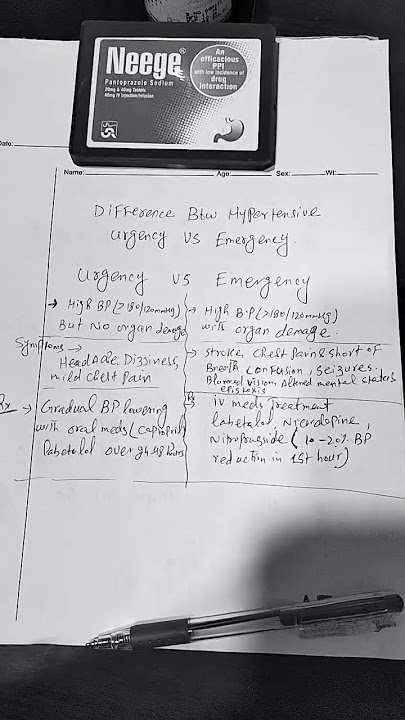 Neege®
Pantoprazole Sodium
20mg & 40mg Tablets
40mg IV Injection/Infusion
An
efficacious
PPI
with low incidence of
drug
interaction
Date:
Name: Age: Sex: Wt:
Difference Btw Hypertensive
Urgency VS Emergency.
Urgency VS Emergency
→ High BP (>180/120mmHg)
But No organ damage
→ High B.P (>180/120mmHg)
with organ damage.
Symptoms →
Headache Dizziness,
mild Chest Pain
→ Stroke, Chest Pain & short of
Breath Confusion, Seizures.
Blurred vision Altered mental status
epistexis
Rx → Gradual BP lowering
with oral meds (Captopril,
labetalol over 24-48 hours
Rx → IV meds Treatment
labetalol, Nicardipine,
Nitroprusside (10-20% BP
reduction in 1st hour)